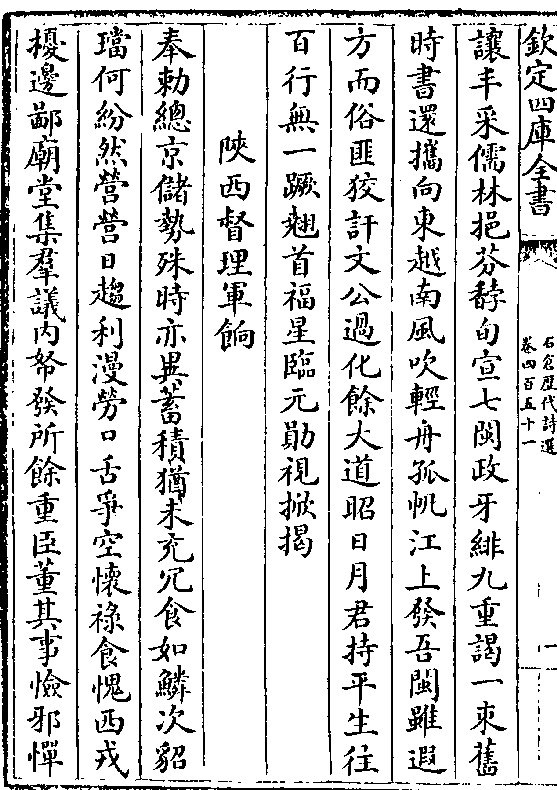 欽定四庫全書
石倉歷代詩選
卷四百五十一
一
讓丰采儒林挹芬馞旬宣七閩政牙緋九重謁一束舊
時書還攜向東越南風吹輕舟孤帆江上發吾閩雖遐
方而俗匪狡訐文公過化餘大道昭日月君持平生往
百行無一蹶翹首福星臨元勛視掀揭
陜西督理軍餉
奉勅總京儲勢殊時亦異蓄積猶未充冗食如鱗次貂
璫何紛然營營日趨利漫勞口舌爭空懷祿食愧西戎
擾邊鄙廟堂集羣議內帑發所餘重臣董其事憸邪憚